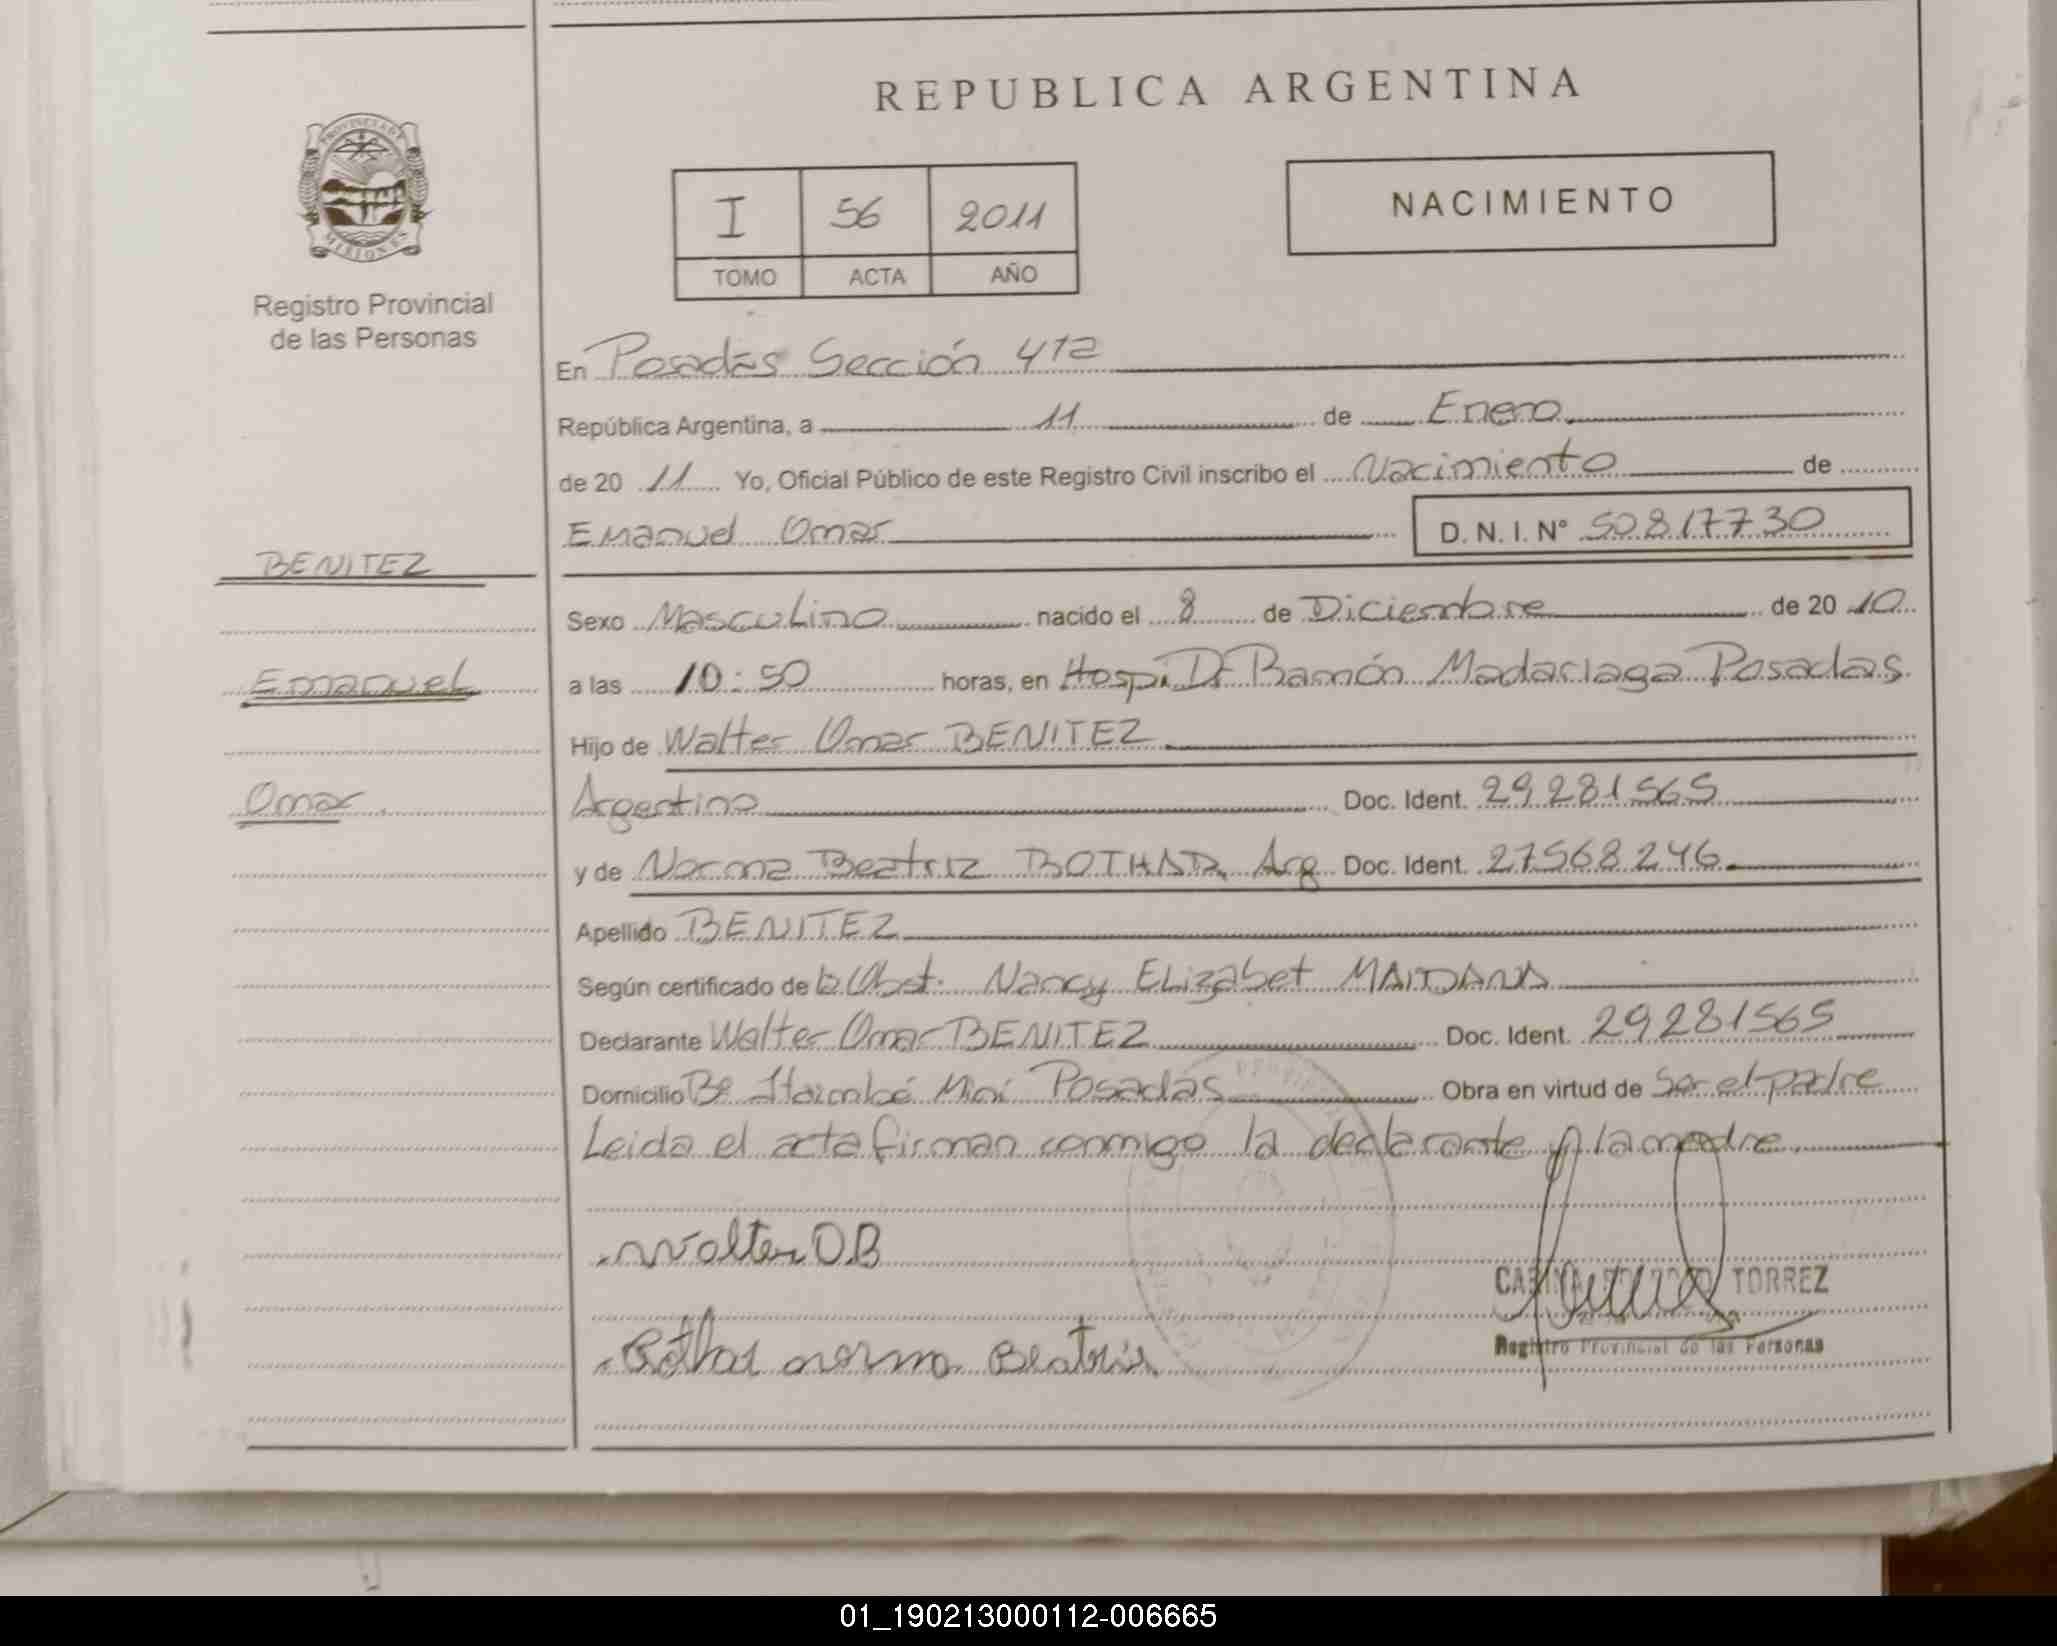 REPUBLICA ARGENTINA
PROVINCIA DE
MISIONES
Registro Provincial
de las Personas
I 56 2011
TOMO ACTA AÑO
NACIMIENTO
En Posadas Sección 412
República Argentina, a 11 de Enero
de 20 11 Yo, Oficial Público de este Registro Civil inscribo el Nacimiento de
Emanuel Omar D. N. I. Nº 50817730
BENITEZ
Emanuel
Omar
Sexo Masculino nacido el 8 de Diciembre de 20 10
a las 10:50 horas, en Hospi. Dr Ramón Madariaga Posadas
Hijo de Walter Omar BENITEZ
Argentino Doc. Ident. 29281565
y de Norma Beatriz BOTHAR Arg Doc. Ident. 27568246
Apellido BENITEZ
Según certificado de la Obst. Nancy Elizabet MAIDANA
Declarante Walter Omar BENITEZ Doc. Ident. 29281565
Domicilio Bº Itaimbé Miní Posadas Obra en virtud de Ser el padre
Leida el acta firman conmigo la declarante y la madre
Walter O.B
Bothar norma Beatriz
TORREZ
Registro Provincial de las Personas
01_190213000112-006665